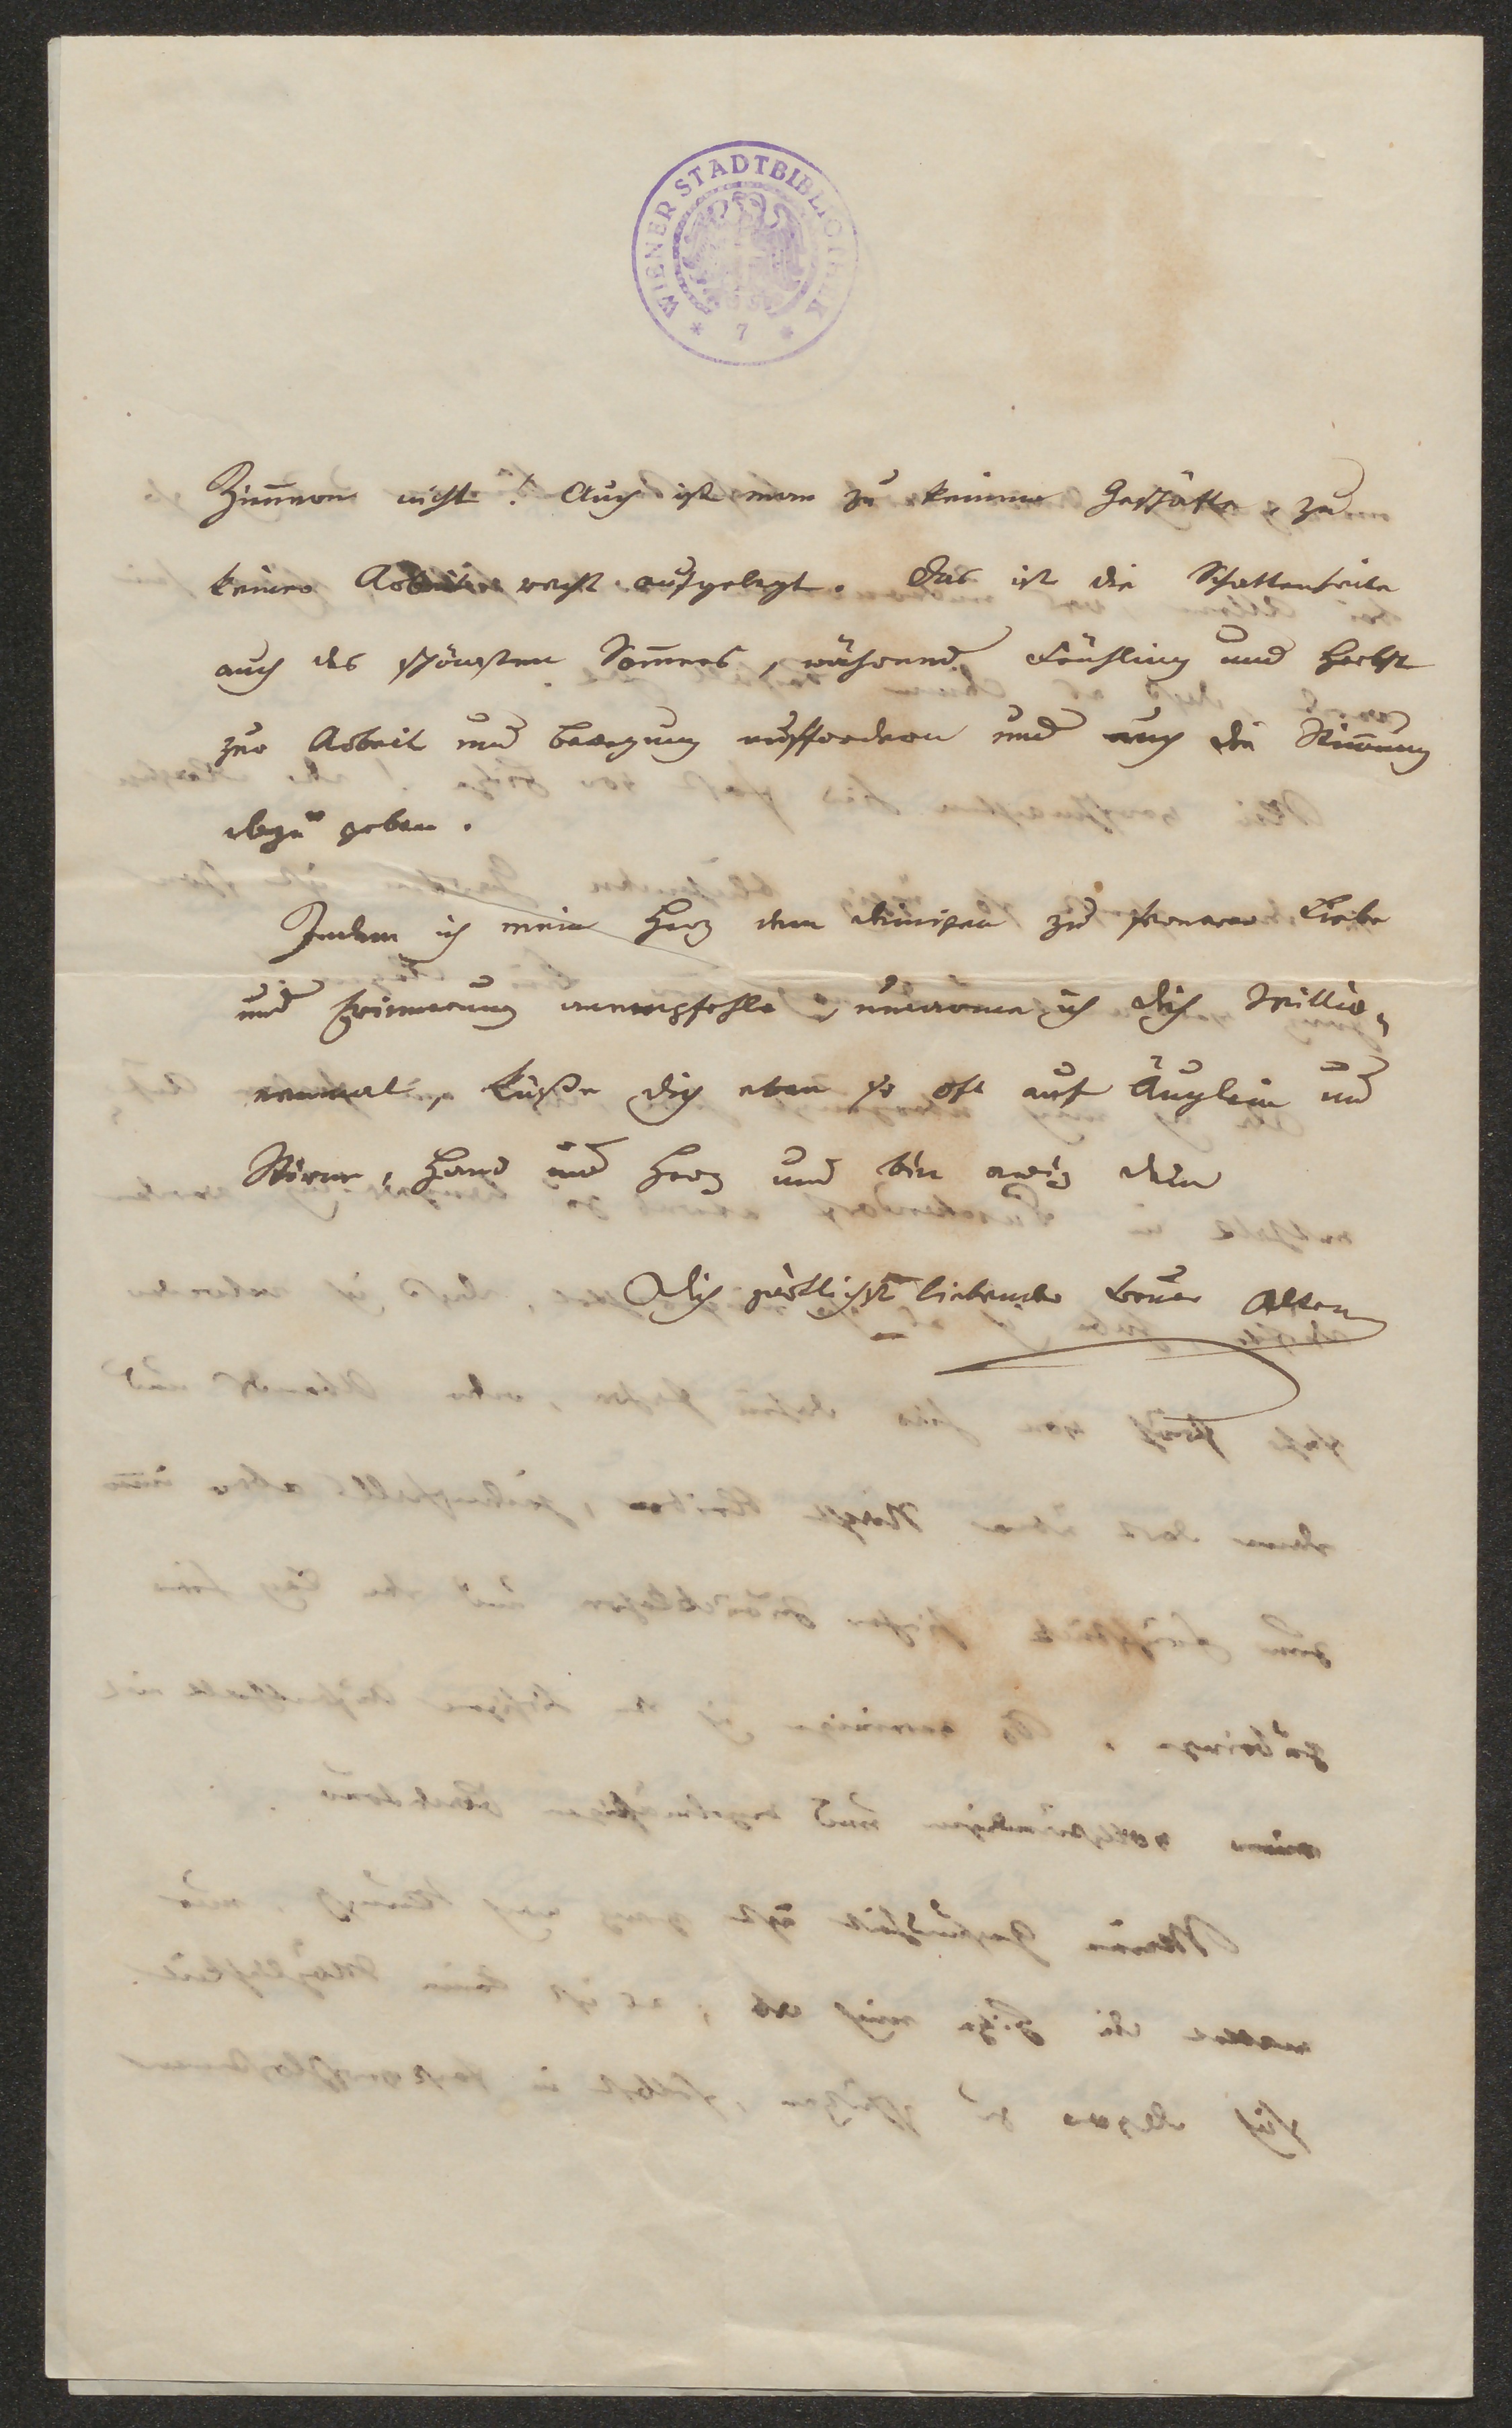 WIENER STADTBIBLIOTHEK
* 7 *
Zim̄ern nicht! Auch ist man zu keinem Geschäfte, zu
keiner Arbeit recht aufgelegt. Das ist die Schattenseite
auch des schönsten Som̄ers, während Frühling und Herbst
zur Arbeit und Bewegung auffordern und auch die Stim̄ung
dazu geben.
Indem ich mein Herz dem deinigen zu fernerer Liebe
und Erinnerung anempfehle, umarme ich dich Millio„
nenmal, küße dich eben so oft auf Äuglein und
Stirne, Hand und Herz und bin ewig dein
Dich zärtlichst liebender treuer Alter